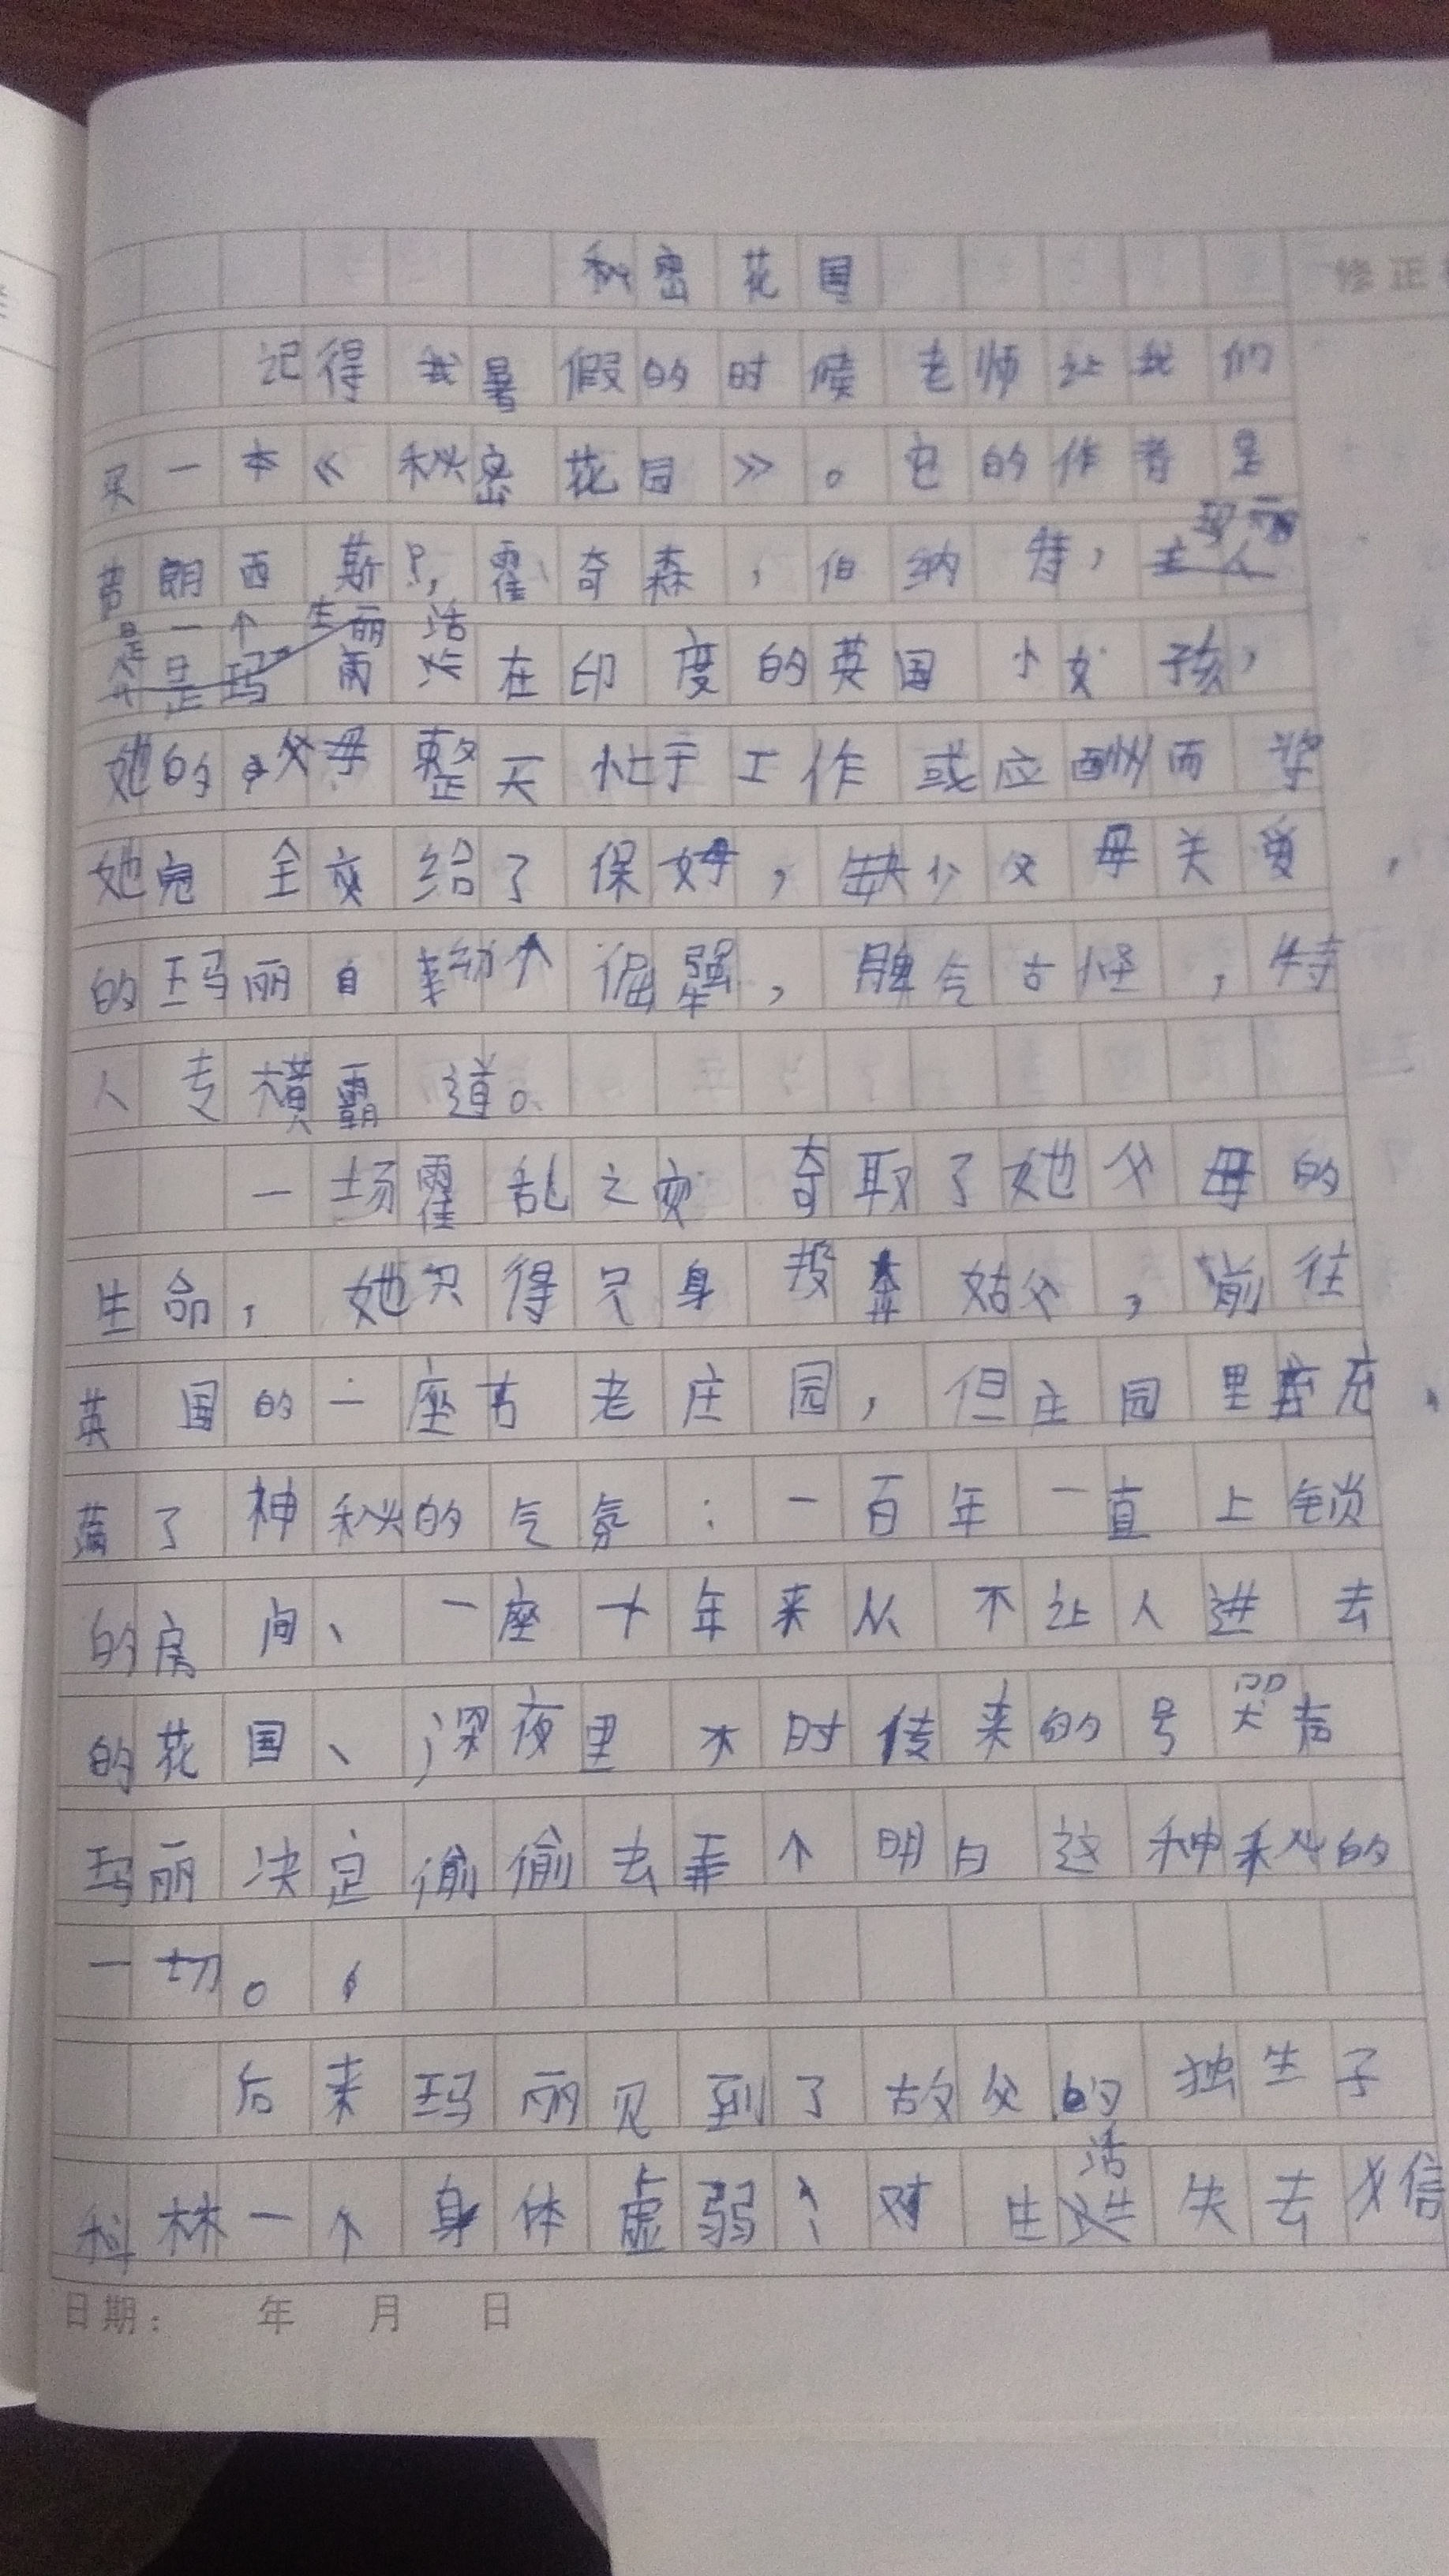 秘密花园
修正
记得我暑假的时候老师让我们
买一本《秘密花园》。它的作者是
弗朗西斯,霍奇森,伯纳特,主人 玛丽
是一个生活
公是玛丽 在印度的英国小女孩,
她的父母整天忙于工作或应酬而将
她完全交给了保姆,缺少父母关爱,
的玛丽自幼个倔强,脾气古怪,待
人专横霸道。
一场霍乱之夜夺取了她父母的
生命,她只得只身投奔姑父,前往
英国的一座古老庄园,但庄园里充
满了神秘的气氛:一百年一直上锁
的房间、一座十年来从不让人进去
的花园、深夜里不时传来的号哭声
玛丽决定偷偷去弄个明白这神秘的
一切。
后来玛丽见到了故父的独生子
活
科林一个身体虚弱、对生 失去 信
日期: 年 月 日